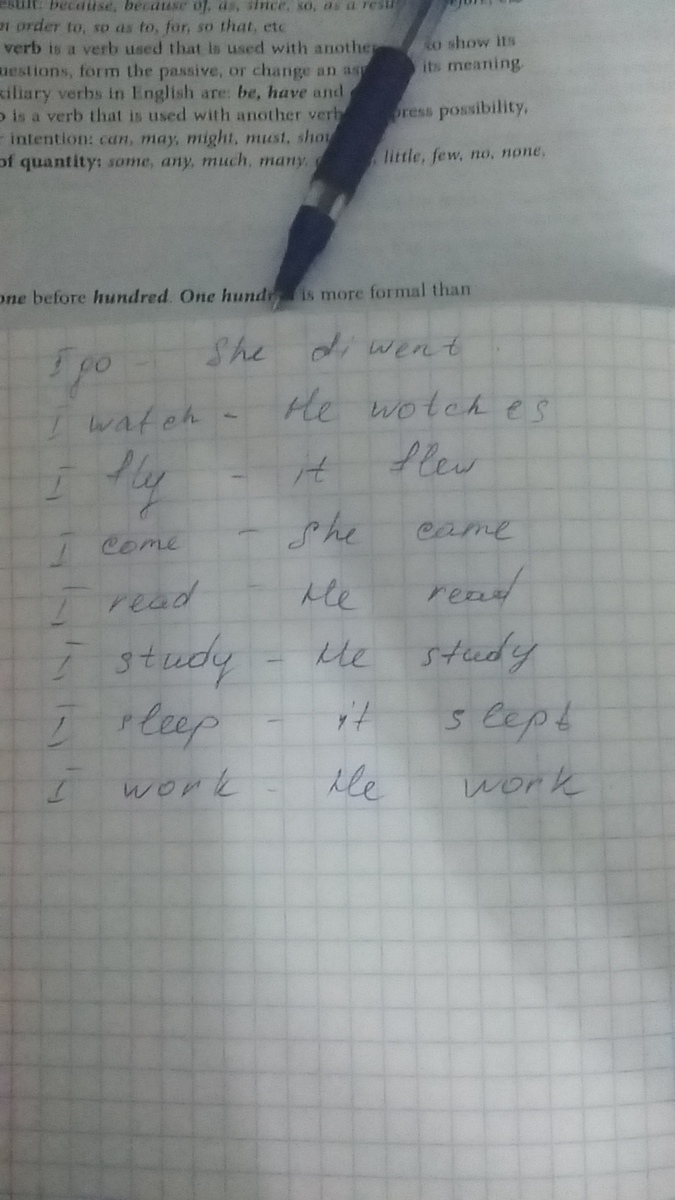 esult: because, because of, as, since, so, as a resu
n order to, so as to, for, so that, etc
verb is a verb used that is used with anothe to show its
uestions, form the passive, or change an as its meaning.
xiliary verbs in English are: be, have and
is a verb that is used with another verb press possibility,
r intention: can, may, might, must, shou
of quantity: some, any, much, many, little, few, no, none,
one before hundred. One hund is more formal than
I go - She di went.
I watch - He wotches
I fly - it flew
I come - She came
I read - He read
I study - He study
I sleep - it slept
I work - He work